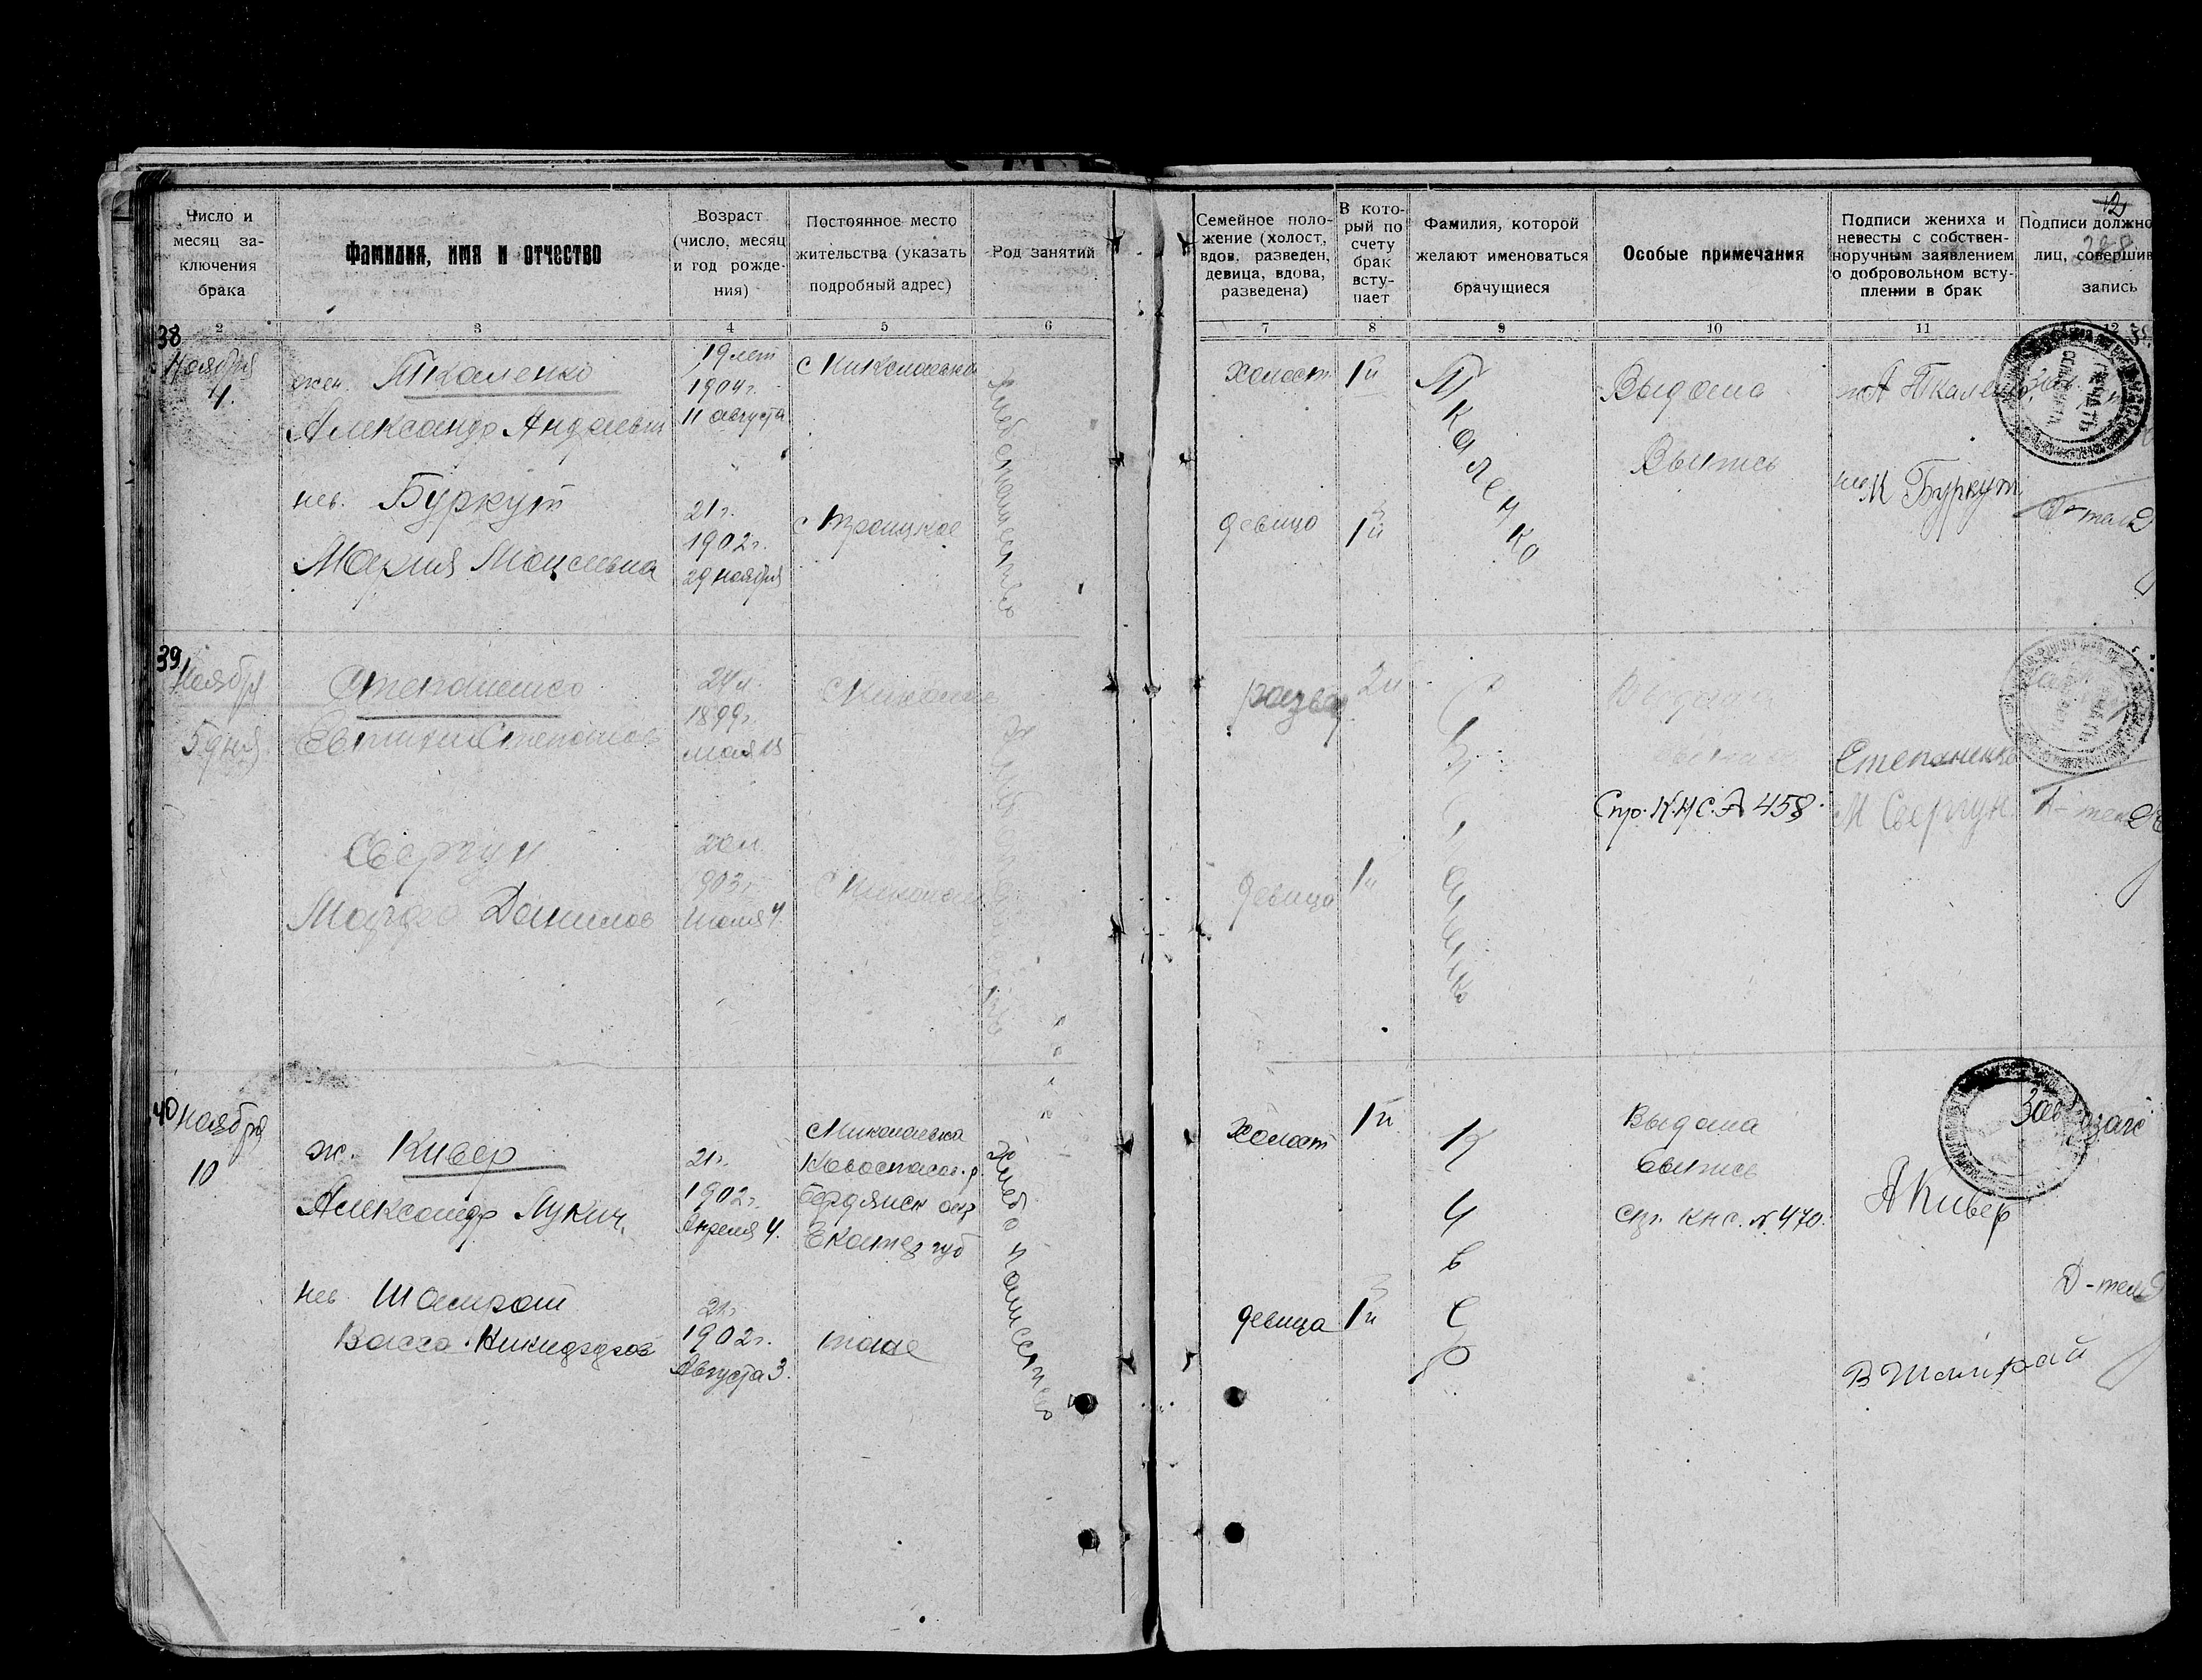 Число и месяц за-
ключения
брака
Фамилия, имя и отчество
Возраст
(число, месяц
и год рожде-
ния)
Постоянное место
жительства (указать
подробный адрес)
Род занятий
Семейное поло-
жение (холост,
вдов, разведен,
девица, вдова,
разведена)
В кото-
рый по
счету
брак
всту-
пает
Фамилия, которой
желают именоваться
брачущиеся
Особые примечания
Подписи жениха и
невесты с собствен-
норучным заявлением
о добровольном всту-
плении в брак
Подписи должно
лиц, совершив
запись
12
288
2 3 4 5 6 7 8 9 10 11 12
38
Ноября
4.
жен. Ткаленко
Александр Андреевич
19 лет
1904г.
11 августа
с Николаевка
Хлебопашество
Холост
1й
Ткаленко
Выдана
Выпись
А Ткаленко
нев. Буркут
Мария Моисеевна
21г.
1902г.
29 ноября
с Троицкое
девица
1й
нев М Буркут
39
Ноября
5 дня
Степаненко
Евтихий Степанов
24 л.
1899г.
мая 15
С Николаев
Хлебопашество
развед
2й
Степаненко
Выдана
выпись
Спр. К.Н.С.А 458.
Степаненко
М Свергун
Свергун
Марфа Данилов
20 л.
1903г.
Июля 4.
С Николаев
девица
1й
40
ноября
10
ж. Кивер
Александр Лукич.
21г.
1902г.
Апреля 4.
С Николаевка
Новоспасов. р
бердянск окр
Екатер губ
Хлебопашество
Холост
1й
Кивер
Выдана
выпись
спр. кнс. № 470.
А Кивер
Зав загс
нев. Шамрай
Васса Никифоров
21г.
1902г.
Августа 3.
тоже
девица
1й
В Шамрай
Д-тель